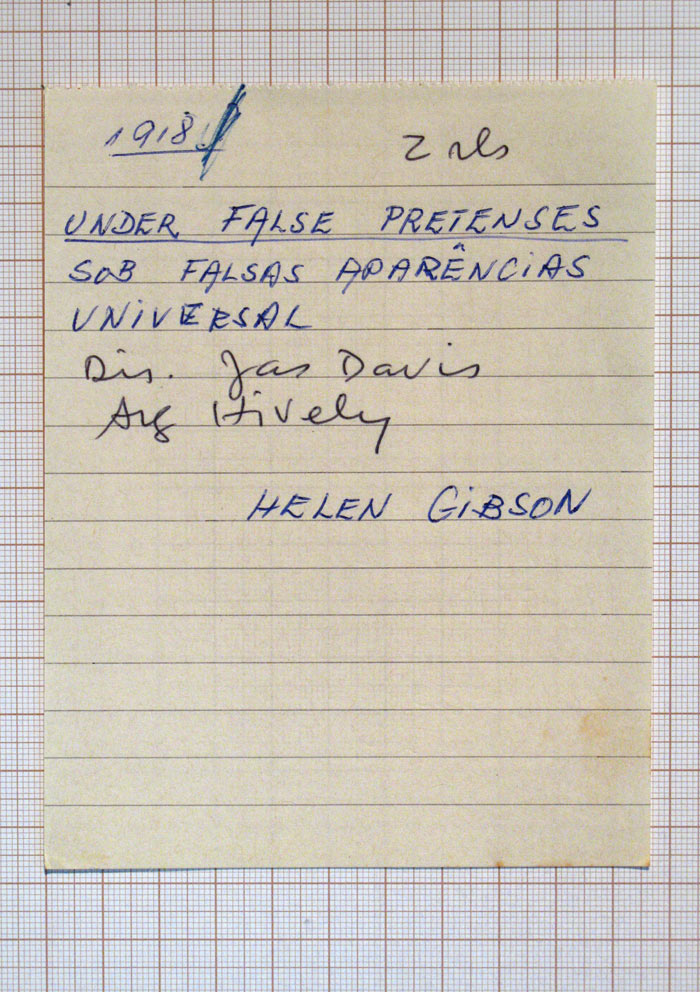 1918
2 rls
UNDER FALSE PRETENSES
SOB FALSAS APARÊNCIAS
UNIVERSAL
Dir. Jas Davis
Arg Hively
HELEN GIBSON